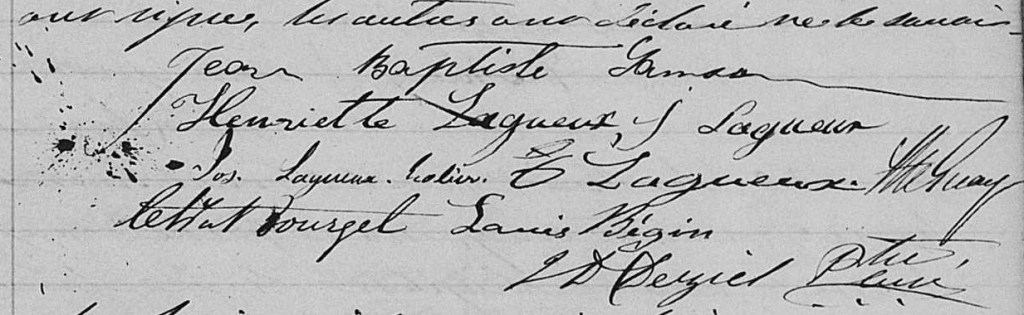 ont signé, les autres ont déclaré ne le savoir
Jean Baptiste Samson
Henriette Lagueux, J Lagueux
Jos. Lagueux. E Lagueux.
Bourget Louis Bégin
Ptre, Curé